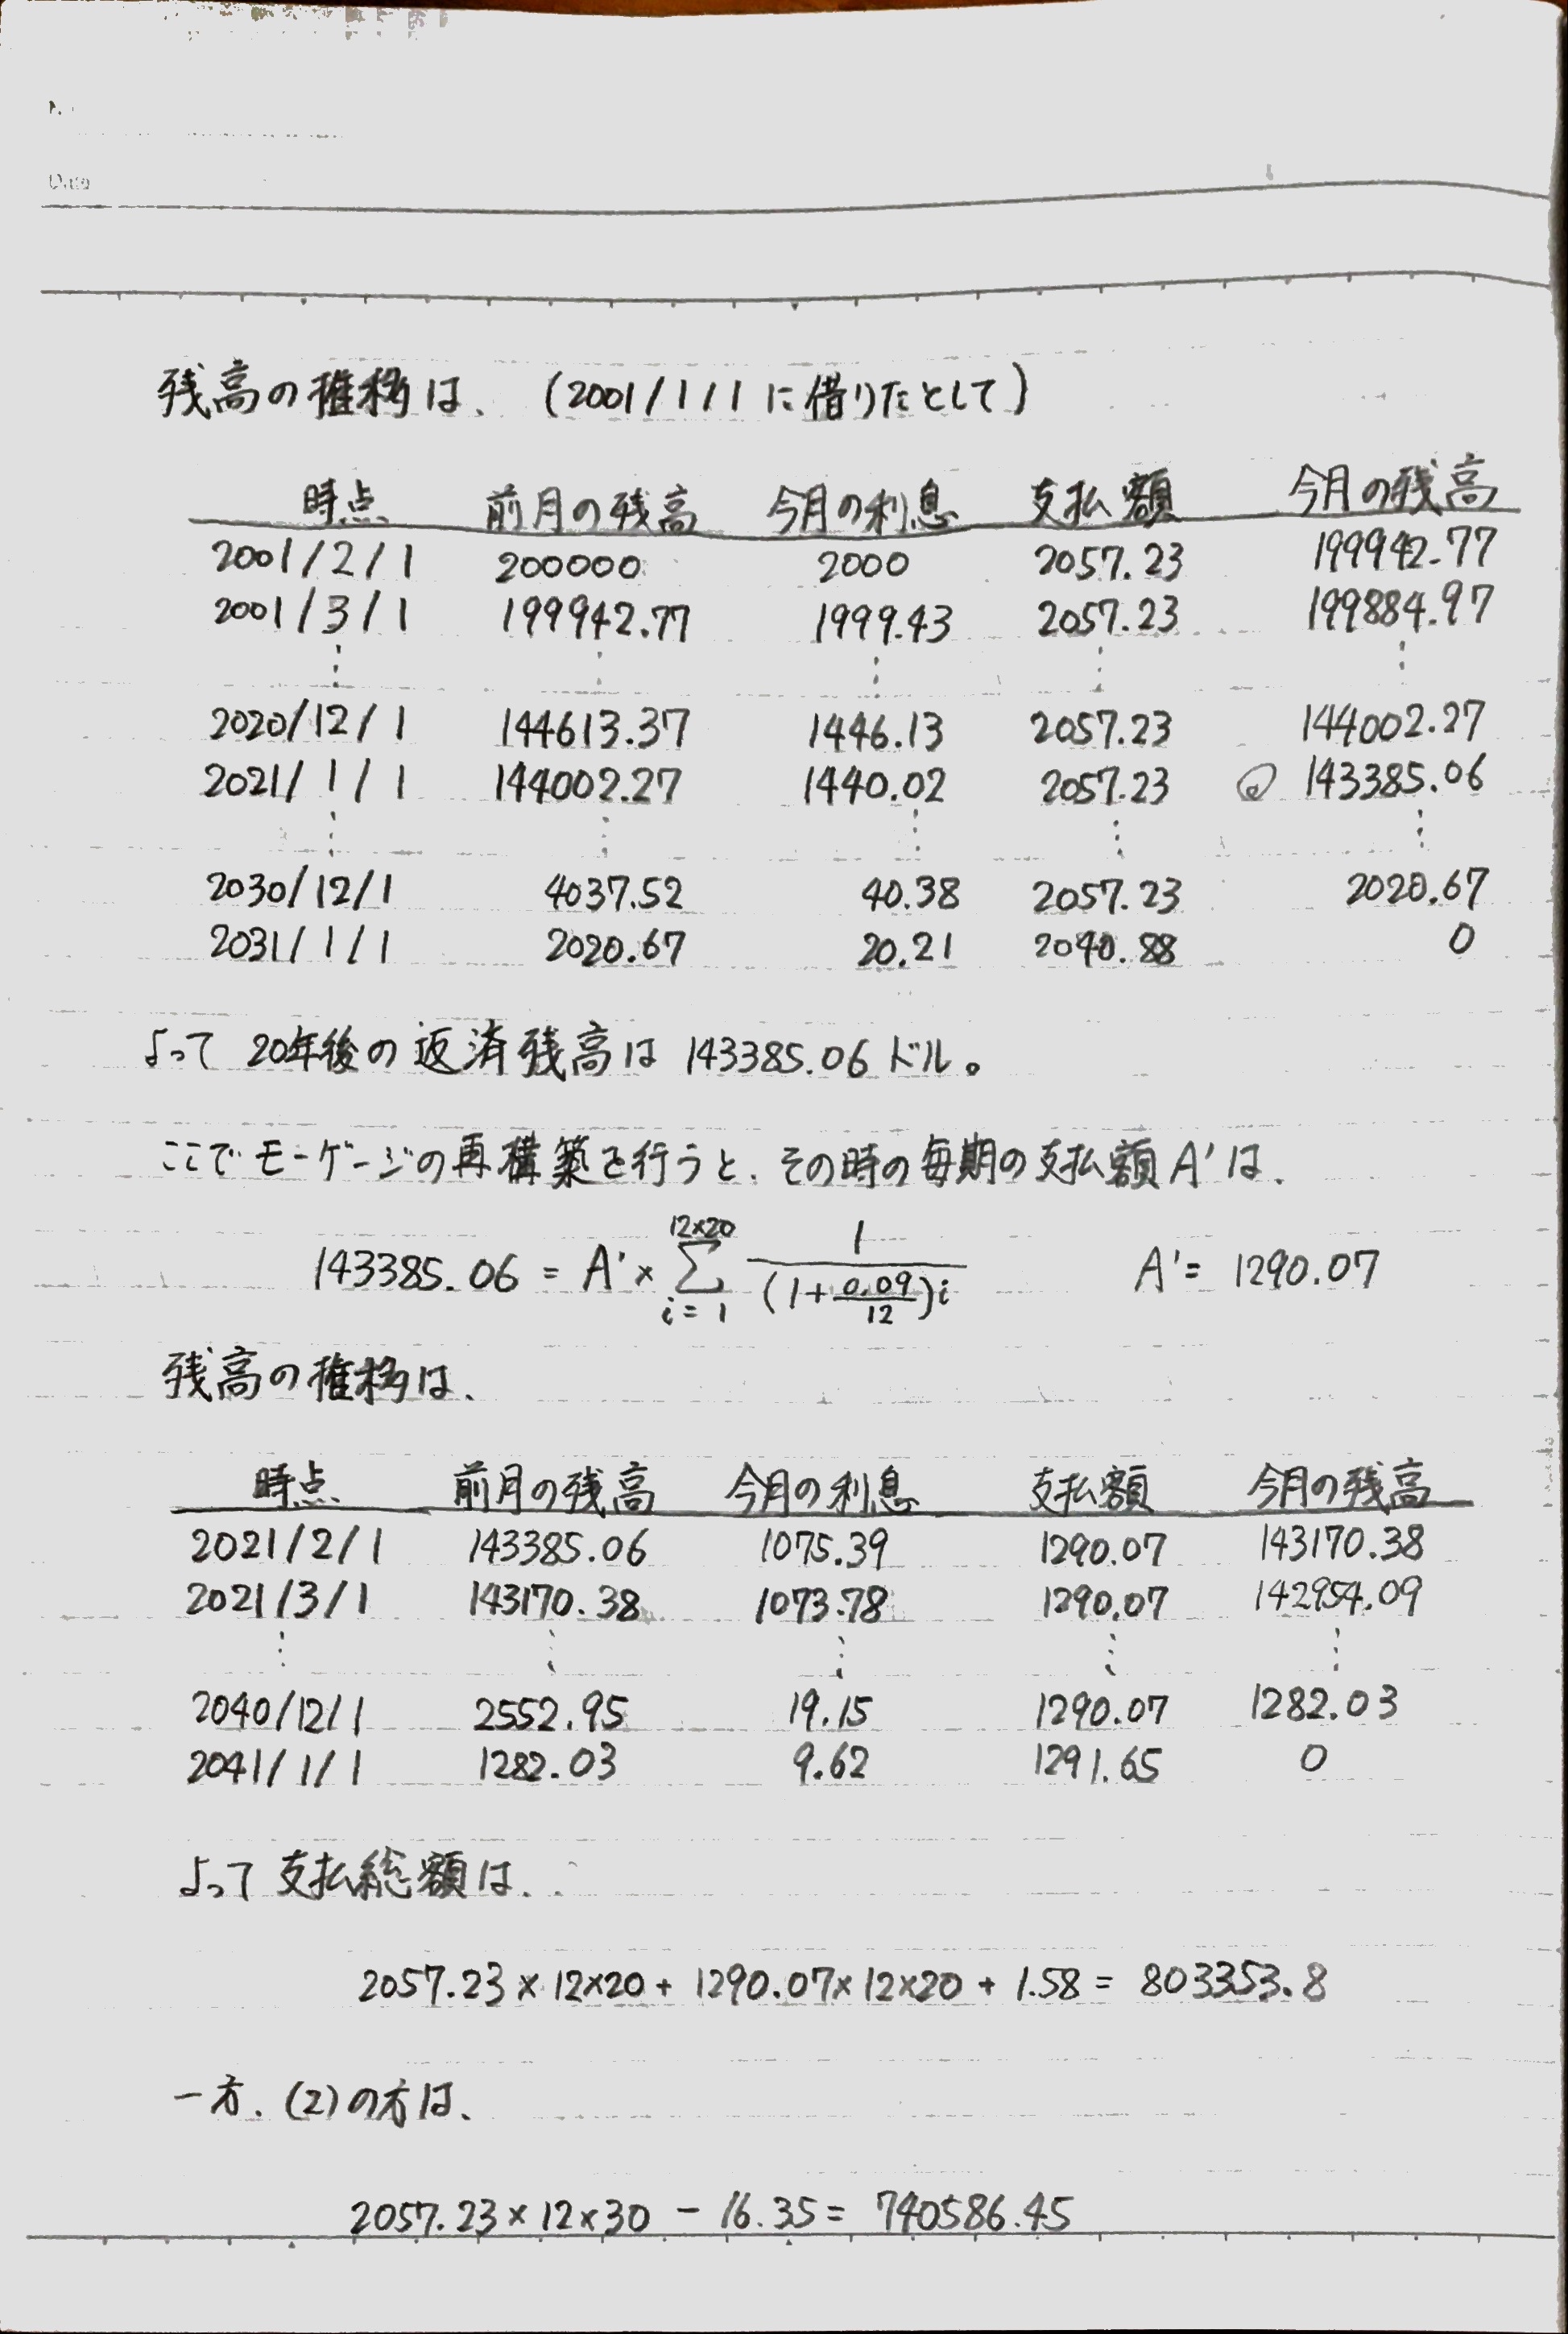 Date
残高の推移は、(2001/1/1に借りたとして)
時点 前月の残高 今月の利息 支払額 今月の残高
2001/2/1 200000 2000 2057.23 199942.77
2001/3/1 199942.77 1999.43 2057.23 199884.97
⋮ ⋮ ⋮ ⋮ ⋮
2020/12/1 144613.37 1446.13 2057.23 144002.27
2021/1/1 144002.27 1440.02 2057.23 143385.06
⋮ ⋮ ⋮ ⋮ ⋮
2030/12/1 4037.52 40.38 2057.23 2020.67
2031/1/1 2020.67 20.21 2040.88 0
よって 20年後の返済残高は 143385.06ドル。
ここでモーゲージの再構築を行うと、その時の毎期の支払額A'は、
143385.06 = A' × Σ_{i=1}^{12×20} 1/(1+0.09/12)i A' = 1290.07
残高の推移は、
時点 前月の残高 今月の利息 支払額 今月の残高
2021/2/1 143385.06 1075.39 1290.07 143170.38
2021/3/1 143170.38 1073.78 1290.07 142954.09
⋮ ⋮ ⋮ ⋮ ⋮
2040/12/1 2552.95 19.15 1290.07 1282.03
2041/1/1 1282.03 9.62 1291.65 0
よって支払総額は、
2057.23×12×20 + 1290.07×12×20 + 1.58 = 803353.8
一方、(2)の方は、
2057.23×12×30 - 16.35 = 740586.45